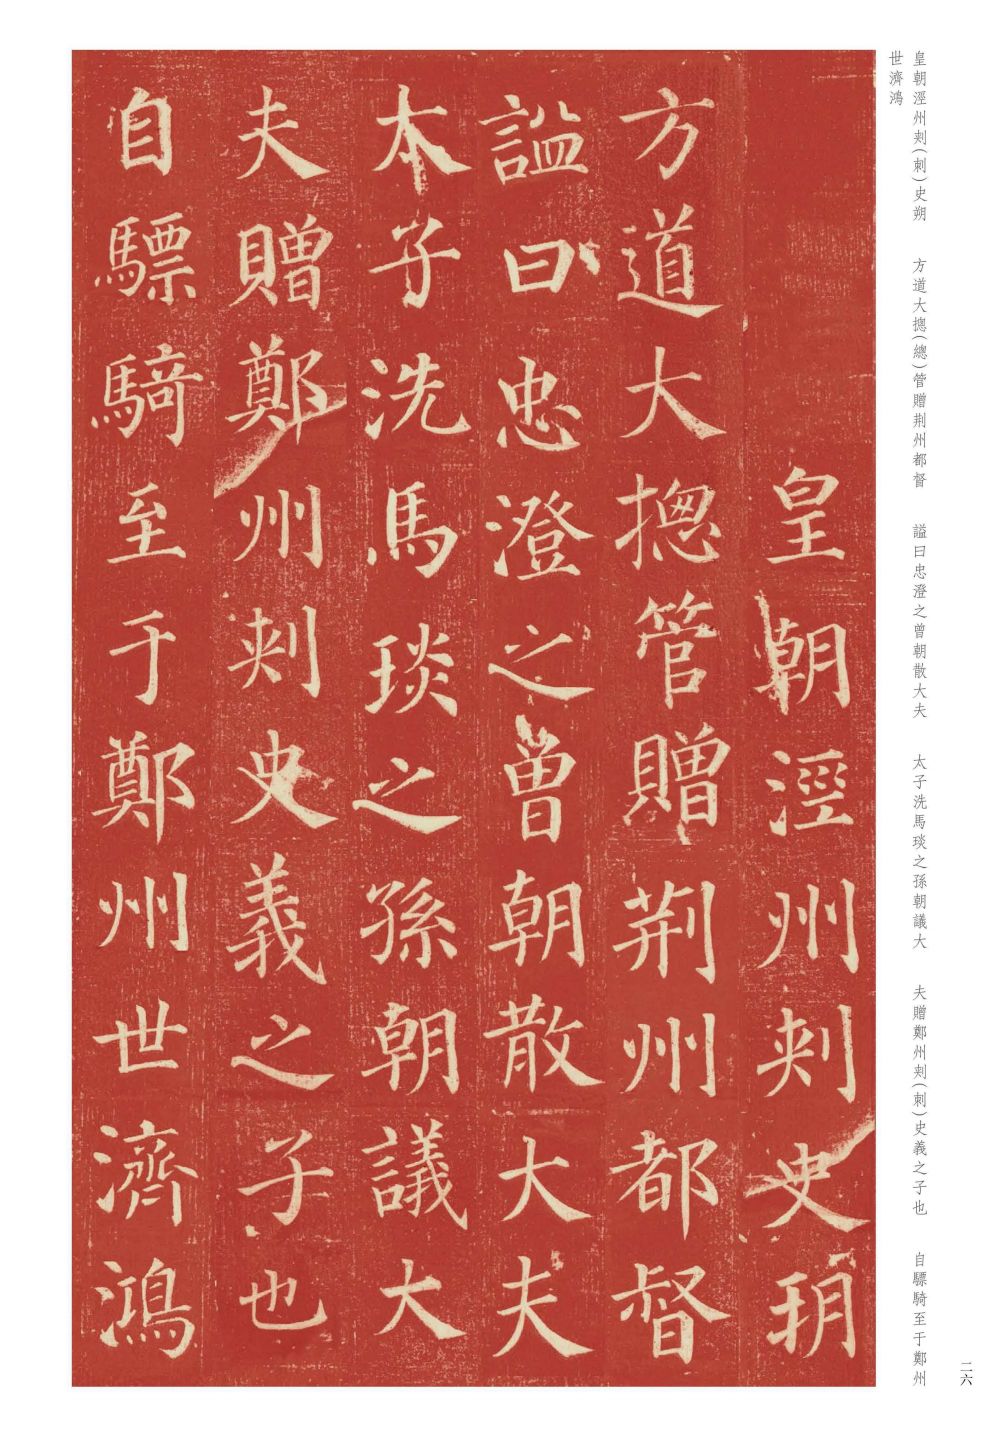 皇朝涇州刾(刺)史朔 方道大摠(總)管贈荆州都督 謚曰忠澄之曾朝散大夫 太子洗馬琰之孫朝議大 夫贈鄭州刾(刺)史義之子也 自驃騎至于鄭州
世濟鴻
皇朝涇州刾史朔
方道大摠管贈荆州都督
謚曰忠澄之曾朝散大夫
太子洗馬琰之孫朝議大
夫贈鄭州刾史義之子也
自驃騎至于鄭州世濟鴻
二六